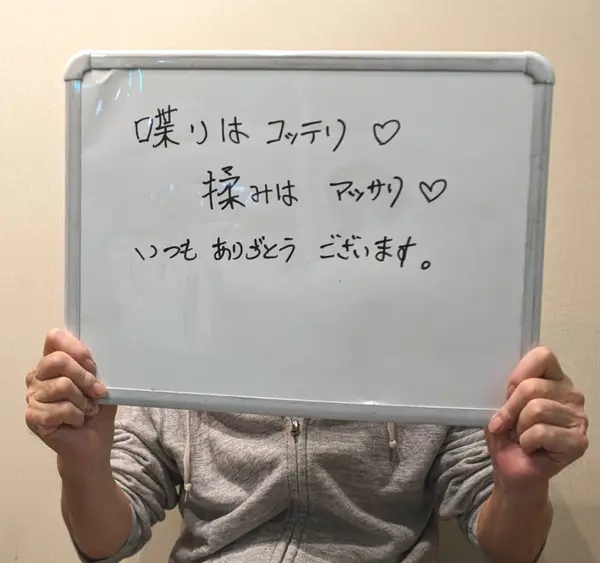 喋りは コッテリ♡
揉みは アッサリ♡
いつも ありがとう ございます。